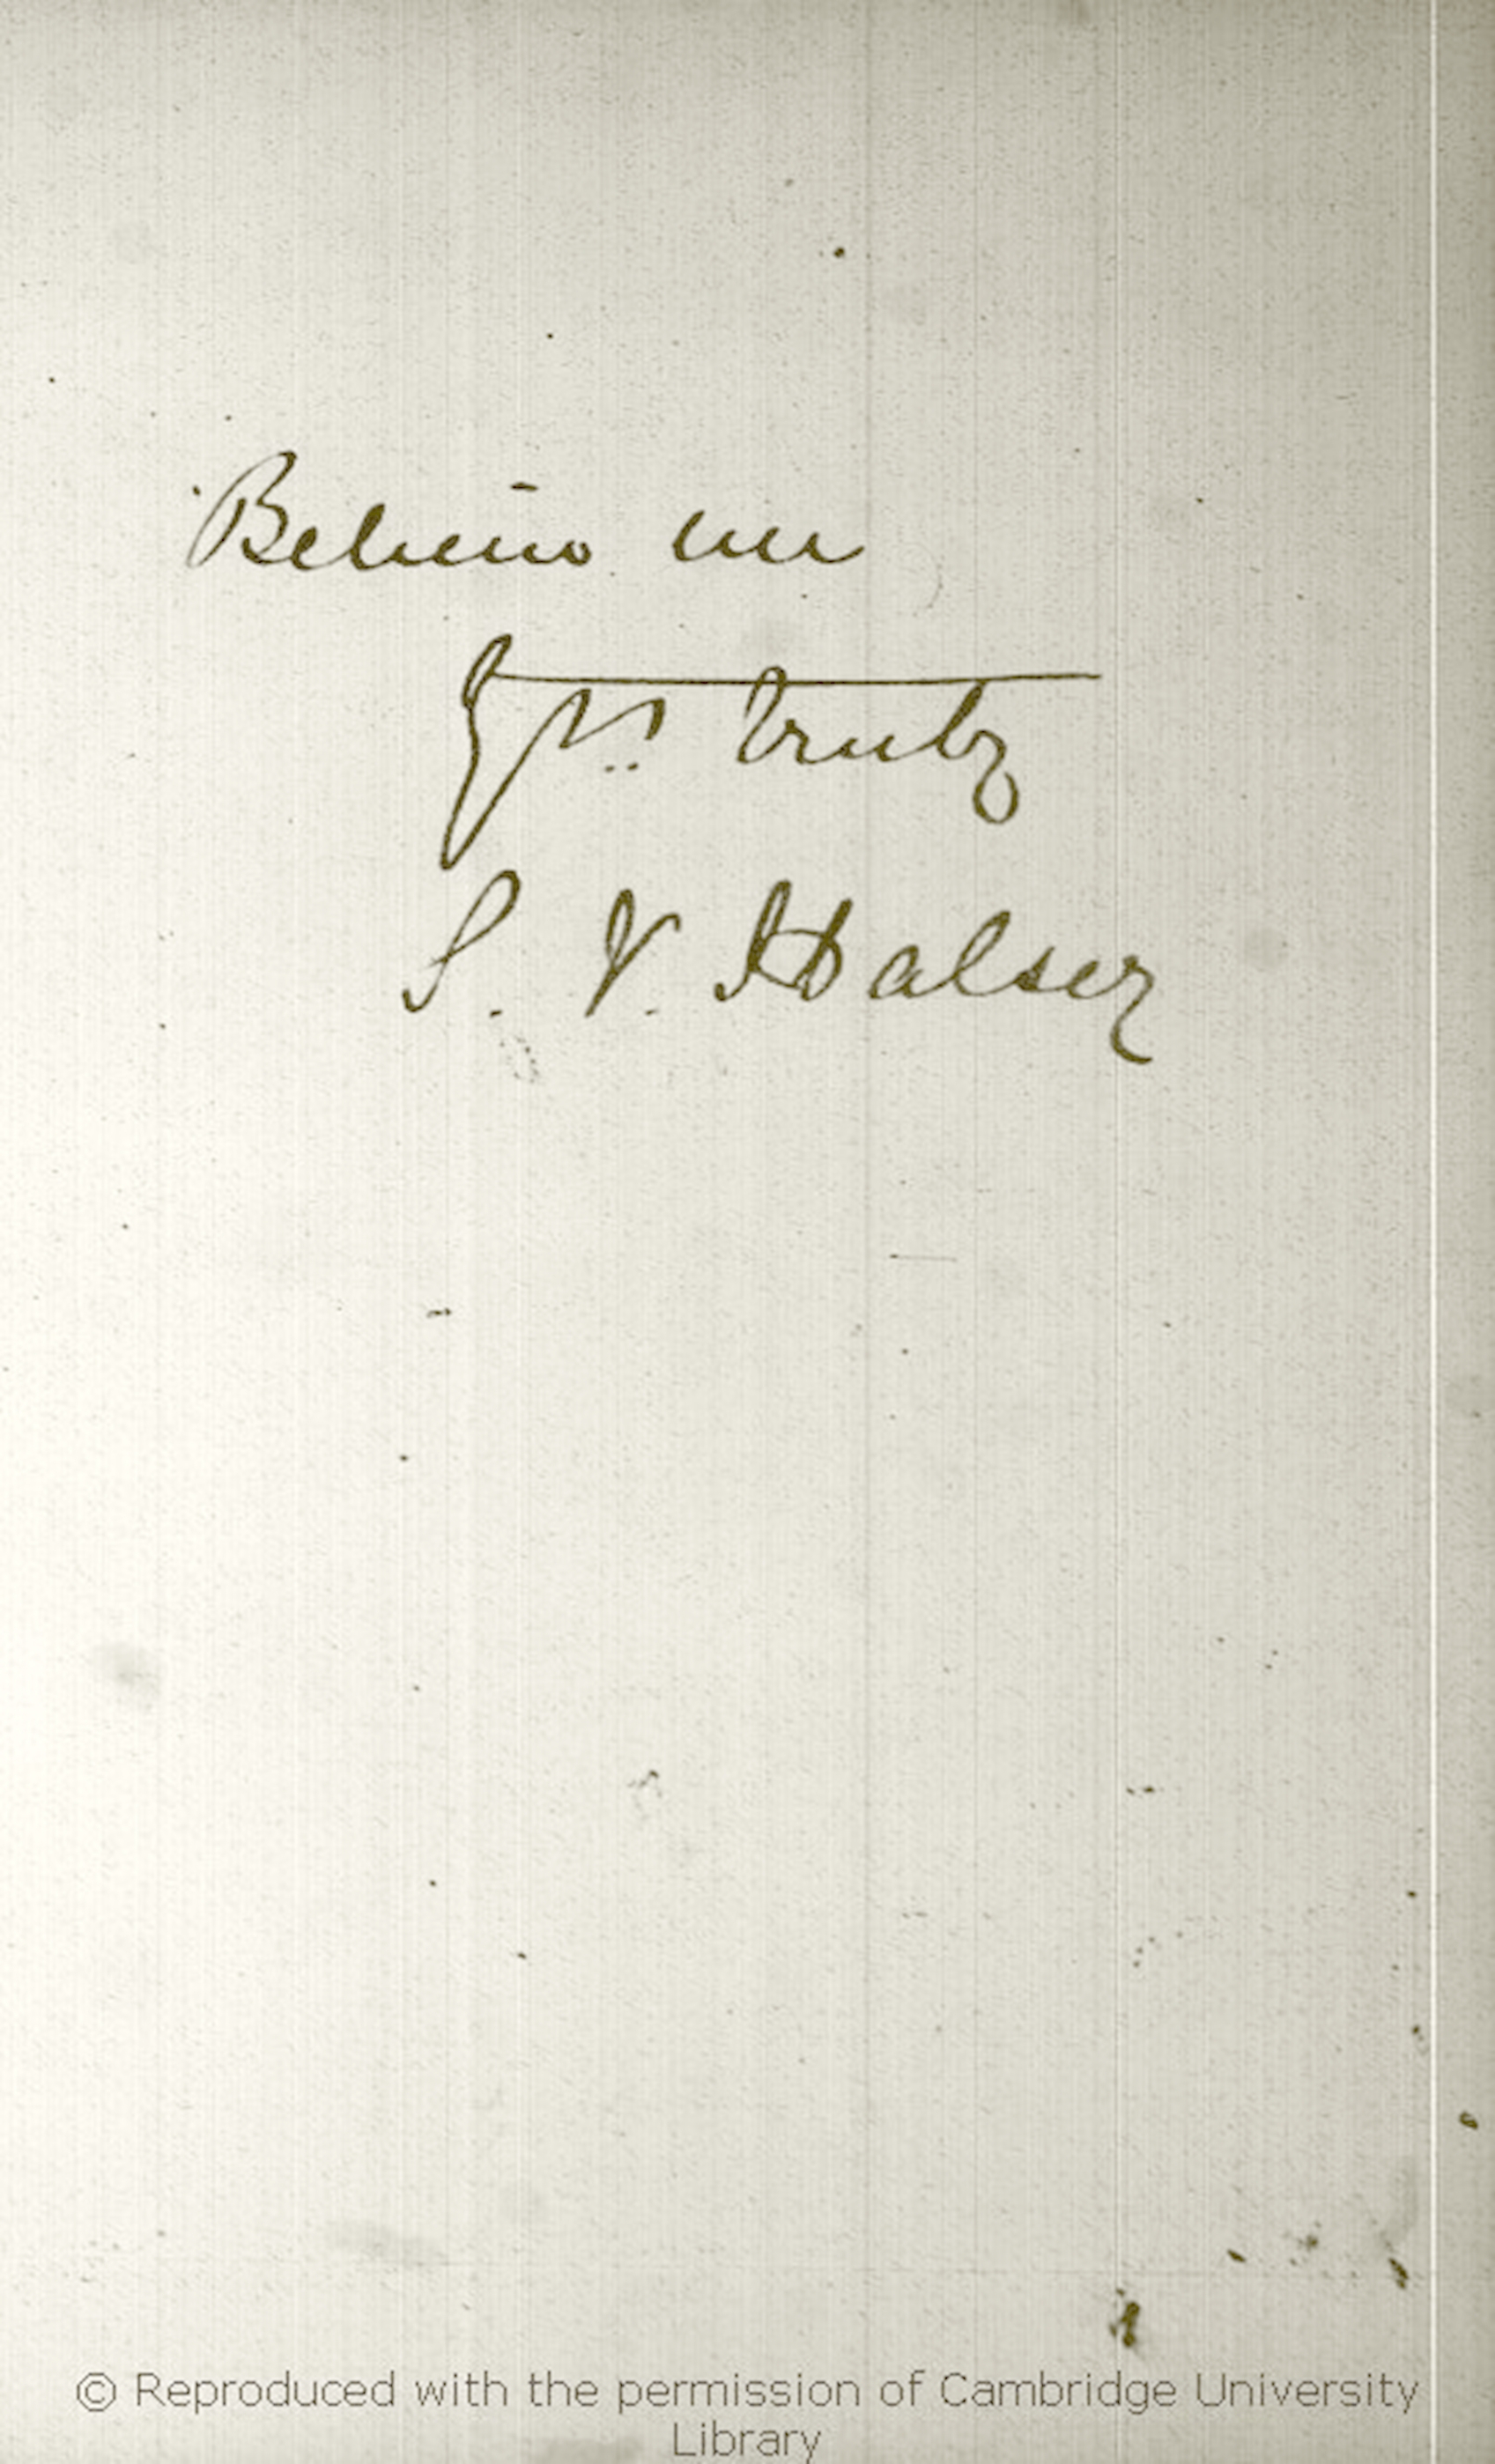 Believe me
Yrs Truly
S. V. Halsey
© Reproduced with the permission of Cambridge University
Library